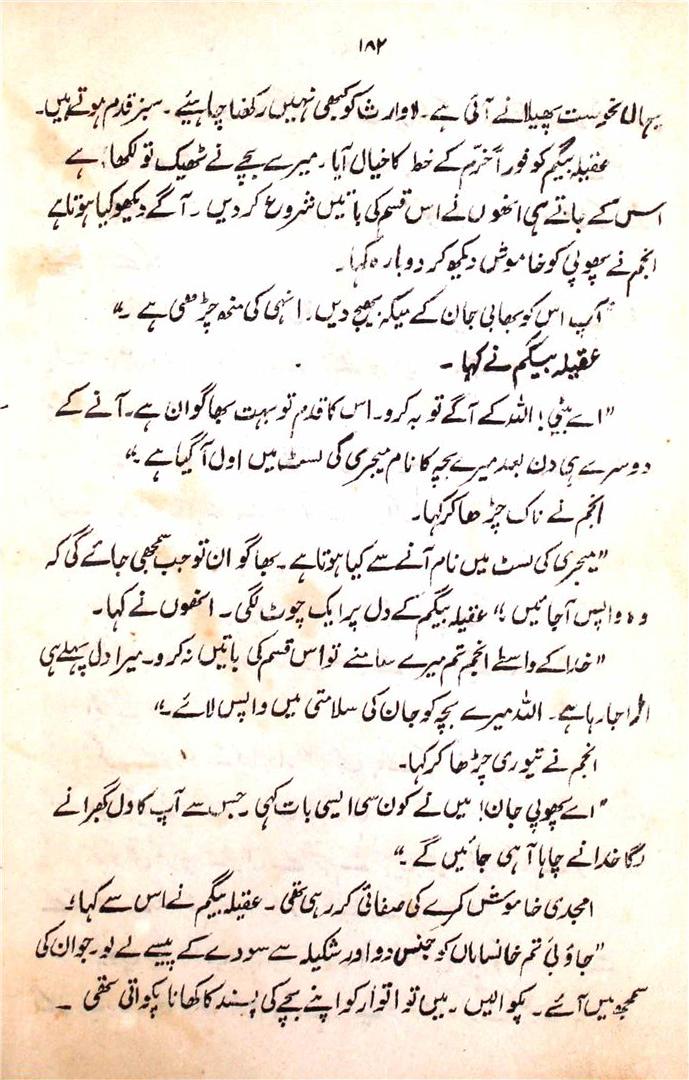 ۱۸۲
یہاں نحوست پھیلانے آئی ہے۔ لاوارث کو کبھی نہیں رکھنا چاہیئے۔ سبز قدم ہوتے ہیں۔
عقیلہ بیگم کو فوراً خرّم کے خط کا خیال آیا۔ میرے بچے نے ٹھیک تو لکھا ہے
اس کے جاتے ہی انھوں نے اس قسم کی باتیں شروع کر دیں۔ آگے دیکھو کیا ہوتا ہے
انجم نے پھوپی کو خاموش دیکھ کر دوبارہ کہا۔
"آپ اس کو بھابی جان کے میکہ بھیج دیں۔ انہی کی منھ چڑھی ہے۔"
عقیلہ بیگم نے کہا۔
"اے بیٹی! اللہ کے آگے توبہ کرو۔ اس کا قدم تو بہت بھاگوان ہے۔ آنے کے
دوسرے ہی دن بعد میرے بچہ کا نام میجری کی لسٹ میں اول آگیا ہے۔"
انجم نے ناک چڑھا کر کہا۔
"میجری کی لسٹ میں نام آنے سے کیا ہوتا ہے۔ بھاگوان تو جب سمجھی جائے گی کہ
وہ واپس آجائیں۔" عقیلہ بیگم کے دل پر ایک چوٹ لگی۔ انھوں نے کہا۔
"خدا کے واسطے انجم تم میرے سامنے تو اس قسم کی باتیں نہ کرو۔ میرا دل پہلے ہی
اڑا جا رہا ہے۔ اللہ میرے بچہ کو جان کی سلامتی میں واپس لائے۔"
انجم نے تیوری چڑھا کر کہا۔
"اے پھوپی جان! میں نے کون سی ایسی بات کہی۔ جس سے آپ کا دل گھبرانے
لگا خدا نے چاہا آ ہی جائیں گے۔"
امجدی خاموش کمرے کی صفائی کر رہی تھی۔ عقیلہ بیگم نے اس سے کہا؛
"جاؤ بی تم خانساماں کو جنس دو اور شکیلہ سے سودے کے پیسے لے لو۔ جو ان کی
سمجھ میں آئے۔ پکوالیں۔ میں تو اتوار کو اپنے بچے کی پسند کا کھانا پکواتی تھی۔